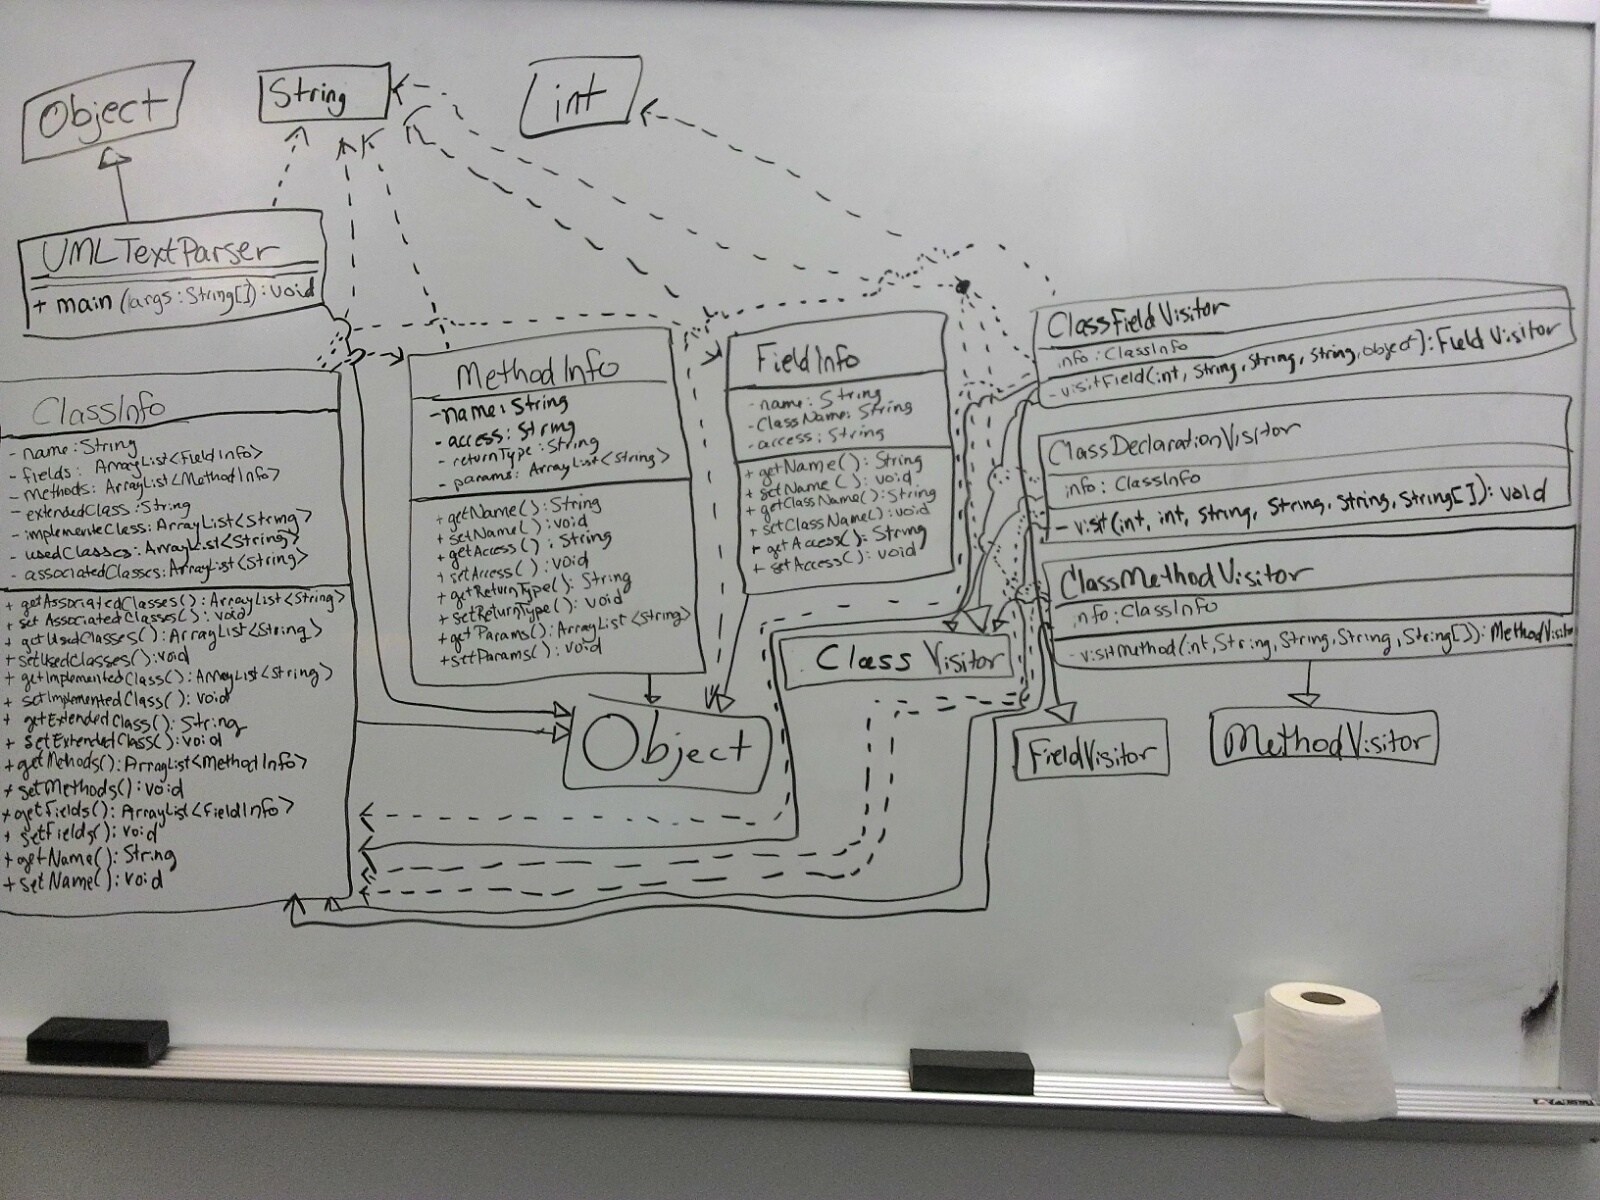 Object
String
int
UMLTextParser
+ main (args: String[]): void
ClassInfo
- name: String
- fields: ArrayList<FieldInfo>
- methods: ArrayList<MethodInfo>
- extendedClass: String
- implementeClass: ArrayList<String>
- usedClasses: ArrayList<String>
- associatedClasses: ArrayList<String>
+ getAssociatedClasses(): ArrayList<String>
+ set Associated Classes(): void
+ getUsedClasses(): ArrayList<String>
+ setUsedClasses(): void
+ getImplementedClass(): ArrayList<String>
+ setImplementedClass(): void
+ getExtendedClass(): String
+ setExtendedClass(): void
+ getMehods(): ArrayList<MethodInfo>
+ setMethods(): void
+ getFields(): ArrayList<FieldInfo>
+ setFields(): void
+ getName(): String
+ setName(): void
MethodInfo
- name: String
- access: String
- returnType: String
- params: ArrayList<String>
+ getName(): String
+ setName(): void
+ getAccess(): String
+ setAccess(): void
+ getReturnType(): String
+ setReturnType(): void
+ getParams(): ArrayList<String>
+ setParams(): void
FieldInfo
- name: String
- ClassName: String
- access: String
+ getName(): String
+ setName(): void
+ getClassName(): String
+ setClassName(): void
+ getAccess(): String
+ setAccess(): void
ClassFieldVisitor
info: ClassInfo
- visitField(int, String, String, String, Object): FieldVisitor
ClassDeclarationVisitor
info: ClassInfo
- visit(int, int, String, String, String, String[]): void
ClassMethodVisitor
info: ClassInfo
- visitMethod(int, String, String, String, String[]): MethodVisitor
Class Visitor
Object
FieldVisitor
MethodVisitor